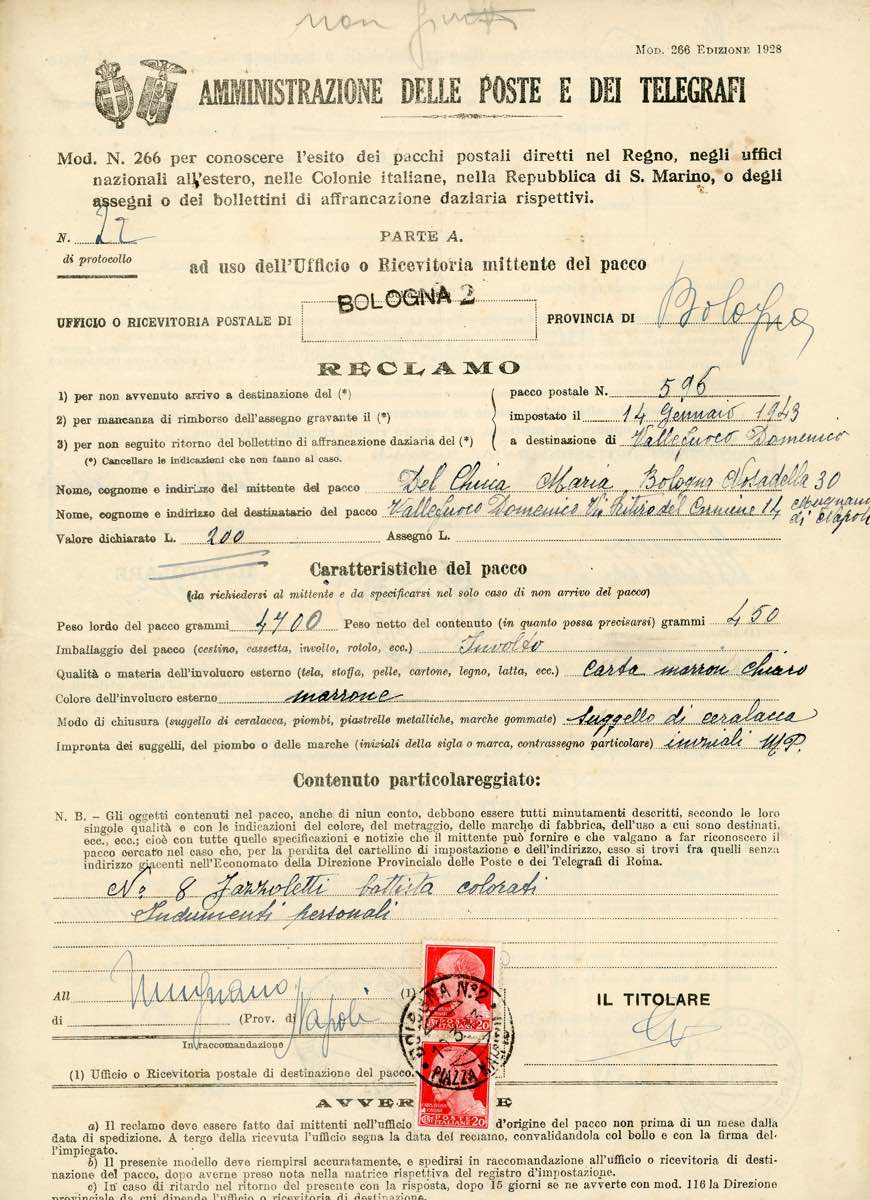 non giunto
MOD. 266 EDIZIONE 1928
AMMINISTRAZIONE DELLE POSTE E DEI TELEGRAFI
Mod. N. 266 per conoscere l'esito dei pacchi postali diretti nel Regno, negli uffici
nazionali all'estero, nelle Colonie italiane, nella Repubblica di S. Marino, o degli
assegni o dei bollettini di affrancazione daziaria rispettivi.
N. 22
di protocollo
PARTE A.
ad uso dell'Ufficio o Ricevitoria mittente del pacco
UFFICIO O RICEVITORIA POSTALE DI BOLOGNA 2 PROVINCIA DI Bologna
RECLAMO
1) per non avvenuto arrivo a destinazione del (*) pacco postale N. 596
2) per mancanza di rimborso dell'assegno gravante il (*) impostato il 14 Gennaio 1943
3) per non seguito ritorno del bollettino di affrancazione daziaria del (*) a destinazione di Vallefuoco Domenico
(*) Cancellare le indicazioni che non fanno al caso.
Nome, cognome e indirizzo del mittente del pacco Del Chicca Maria Bologna Nosadella 30
Nome, cognome e indirizzo del destinatario del pacco Vallefuoco Domenico Via Ritiro del Carmine 14 Mugnano
di Napoli
Valore dichiarato L. 200 Assegno L.
Caratteristiche del pacco
(da richiedersi al mittente e da specificarsi nel solo caso di non arrivo del pacco)
Peso lordo del pacco grammi 4700 Peso netto del contenuto (in quanto possa precisarsi) grammi 450
Imballaggio del pacco (cestino, cassetta, involto, rotolo, ecc.) Involto
Qualità o materia dell'involucro esterno (tela, stoffa, pelle, cartone, legno, latta, ecc.) carta marron chiaro
Colore dell'involucro esterno marrone
Modo di chiusura (suggello di ceralacca, piombi, piastrelle metalliche, marche gommate) suggello di ceralacca
Impronta dei suggelli, del piombo o delle marche (iniziali della sigla o marca, contrassegno particolare) iniziali M.P.
Contenuto particolareggiato:
N. B. - Gli oggetti contenuti nel pacco, anche di niun conto, debbono essere tutti minutamenti descritti, secondo le loro
singole qualità e con le indicazioni del colore, del metraggio, delle marche di fabbrica, dell'uso a cui sono destinati,
ecc., ecc.; cioè con tutte quelle specificazioni e notizie che il mittente può fornire e che valgano a far riconoscere il
pacco cercato nel caso che, per la perdita del cartellino di impostazione e dell'indirizzo, esso si trovi fra quelli senza
indirizzo giacenti nell'Economato della Direzione Provinciale delle Poste e dei Telegrafi di Roma.
No 8 fazzoletti battista colorati
Indumenti personali
All Mugnano (1)
di (Prov. di Napoli
In raccomandazione
IL TITOLARE
(1) Ufficio o Ricevitoria postale di destinazione del pacco.
BOLOGNA N.º 2
PIAZZA
POSTE ITALIANE 20
POSTE ITALIANE 20
AVVER E
a) Il reclamo deve essere fatto dai mittenti nell'ufficio d'origine del pacco non prima di un mese dalla
data di spedizione. A tergo della ricevuta l'ufficio segna la data del reclamo, convalidandola col bollo e con la firma del-
l'impiegato.
b) Il presente modello deve riempirsi accuratamente, e spedirsi in raccomandazione all'ufficio o ricevitoria di desti-
nazione del pacco, dopo averne preso nota nella matrice rispettiva del registro d'impostazione.
c) In caso di ritardo nel ritorno del presente con la risposta, dopo 15 giorni se ne avverte con mod. 116 la Direzione
provinciale da cui dipende l'ufficio o ricevitoria di destinazione.